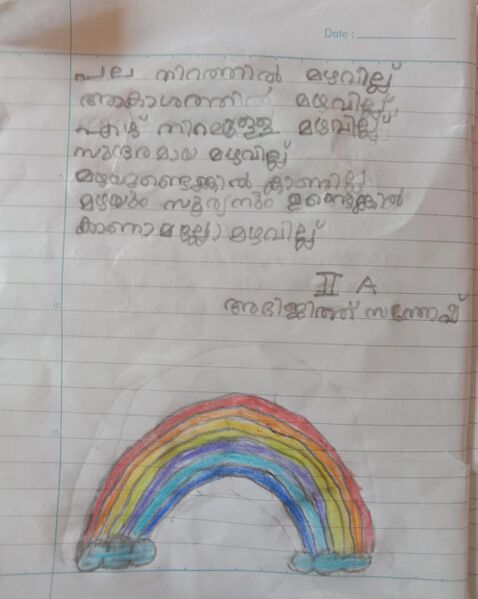 Date :
പല നിറത്തിൽ മഴവില്ല്
ആകാശത്തിൽ മഴവില്ല്
ഏഴ് നിറമുള്ള മഴവില്ല്
സുന്ദരമായ മഴവില്ല്
മഴയുണ്ടെങ്കിൽ കാണില്ല
മഴയും സൂര്യനും ഉണ്ടെങ്കിൽ
കാണാമല്ലോ മഴവില്ല്
II A
അഭിജിത്ത് സന്തോഷ്
5
10
15